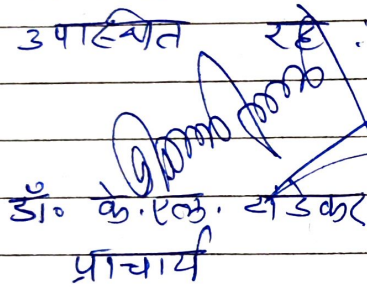 उपास्थित रहे.
डॉ० के.एल. टांडेकर
प्राचार्य